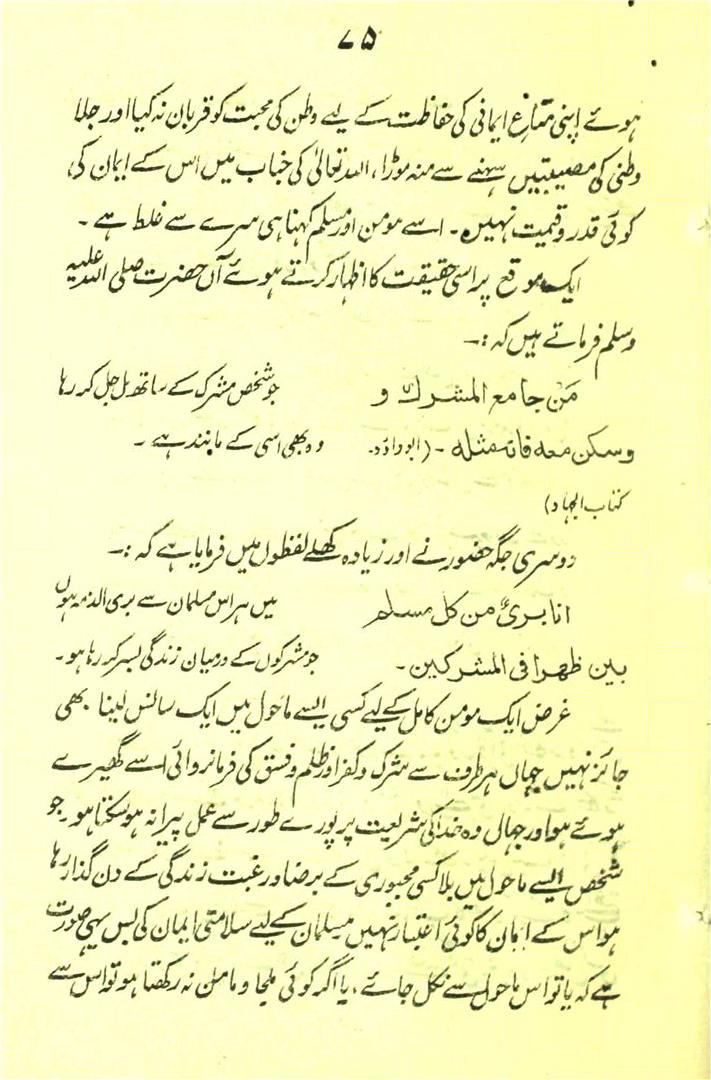 ۷۵
ہوئے اپنی متاعِ ایمانی کی حفاظت کے لیے وطن کی محبت کو قربان نہ کیا اور جلا
وطنی کی مصیبتیں سہنے سے منہ موڑا، اللہ تعالیٰ کی جناب میں اس کے ایمان کی
کوئی قدر و قیمت نہیں۔ اسے مومن اور مسلم کہنا ہی سرے سے غلط ہے۔
ایک موقع پر اسی حقیقت کا اظہار کرتے ہوئے آں حضرت صلی اللہ علیہ
وسلم فرماتے ہیں کہ :۔
مَنْ جامع المشرك و جو شخص مشرک کے ساتھ مل جل کر رہا
وسكن معه فانه مثله ۔ (ابوداؤد۔ وہ بھی اسی کے مانند ہے۔
کتاب الجہاد)
دوسری جگہ حضور نے اور زیادہ کھلے لفظوں میں فرمایا ہے کہ :۔
انا برئ من كل مسلم میں ہر اس مسلمان سے بری الذمہ ہوں
بين ظهرا فى المشركين۔ جو مشرکوں کے درمیان زندگی بسر کر رہا ہو۔
غرض ایک مومن کامل کے لیے کسی ایسے ماحول میں ایک سانس لینا بھی
جائز نہیں جہاں ہر طرف سے شرک و کفر اور ظلم و فسق کی فرمانروائی اسے گھیرے
ہوئے ہو اور جہاں وہ خدا کی شریعت پر پورے طور سے عمل پیرا نہ ہو سکتا ہو جو
شخص ایسے ماحول میں بلا کسی مجبوری کے برضا ور غبت زندگی کے دن گذار رہا
ہو اس کے ایمان کا کوئی اعتبار نہیں مسلمان کے لیے سلامتی ایمان کی بس یہی صورت
ہے کہ یا تو اس ماحول سے نکل جائے، یا اگر کوئی ملجا و مامن نہ رکھتا ہو تو اس سے